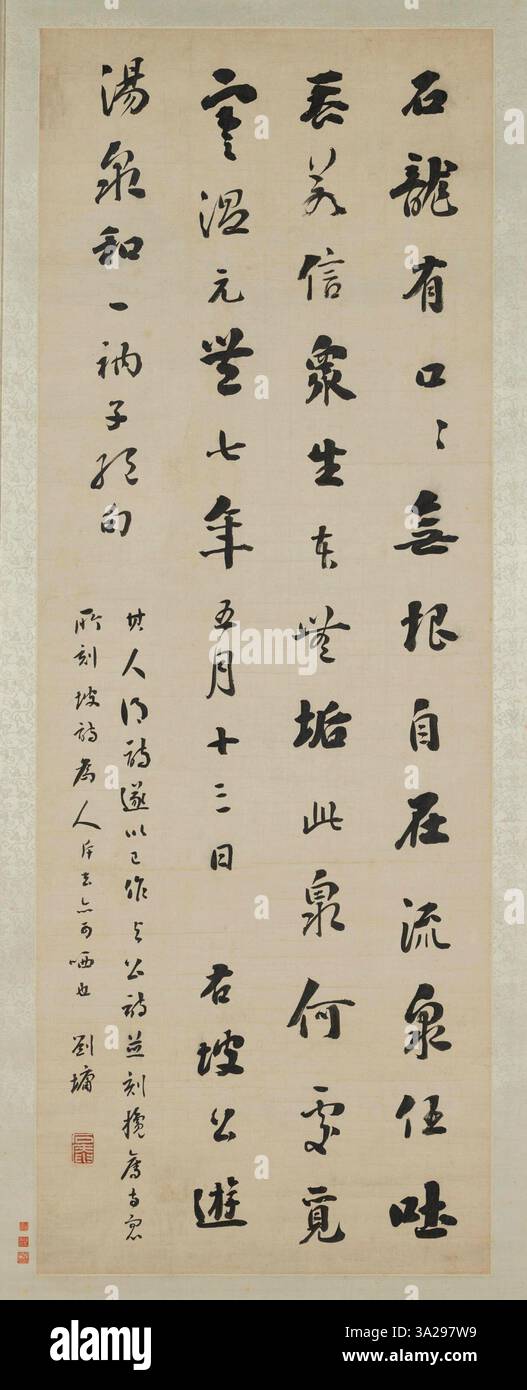 石龍有口〻無根自在流泉任吐
吞若信衆生本無垢此泉何處覓
寒溫元豐七年五月十三日 右坡公遊
湯泉和一衲子絕句
其人得詩遂以己作与公詩並刻
所刻坡詩為人斥去亦可哂也 劉墉
alamy
Image ID: 3A297W9
www.alamy.com